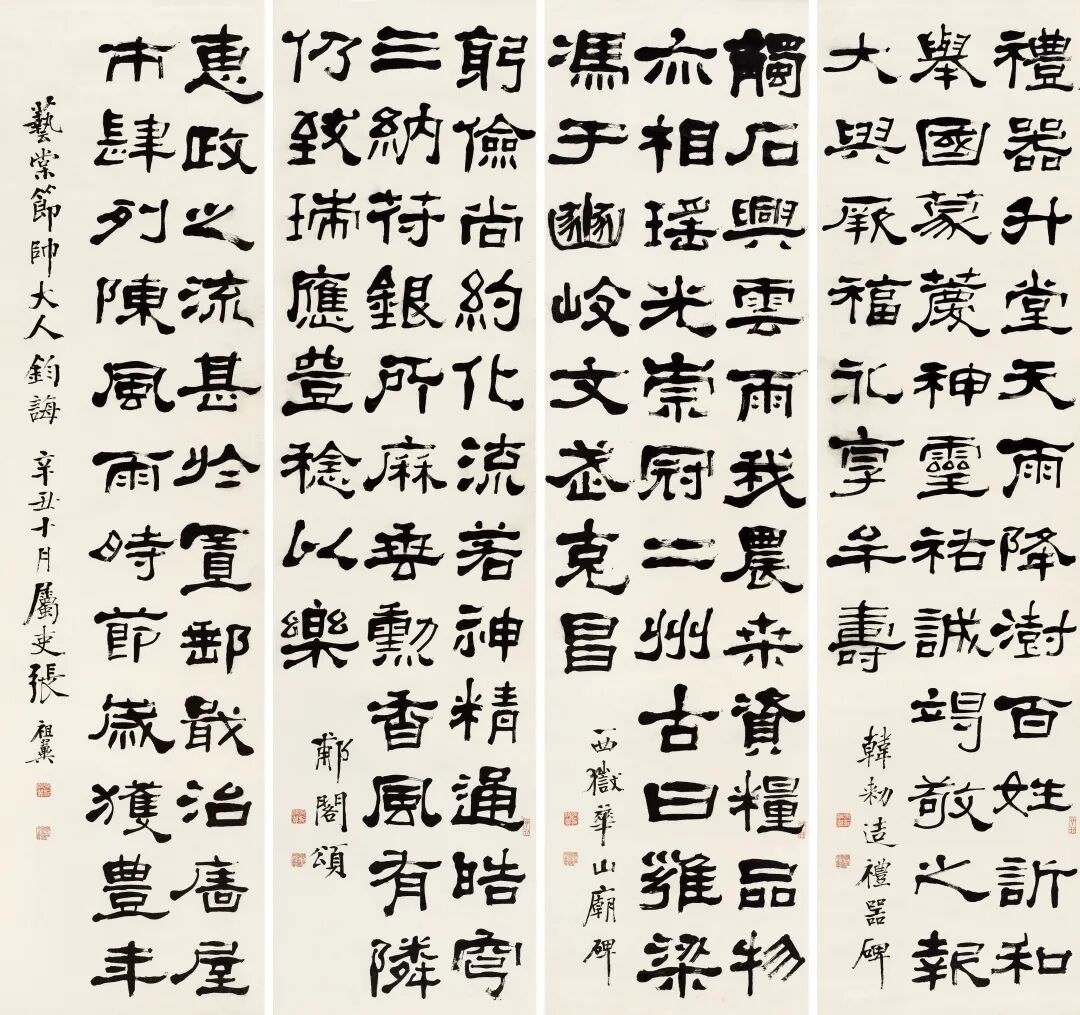 禮器升堂天雨降澍百姓訢和
舉國蒙慶神靈祐誠竭敬之報
大與厥福永享牟壽
韓勑造禮器碑
觸石興雲雨我農桒資糧品物
亦相瑤光崇冠二州古曰雍梁
馮于豳岐文武克昌
西嶽華山廟碑
躬儉尚約化流若神精通皓穹
三納苻銀所麻垂勳香風有隣
仍致瑞應豐稔以樂
郙閣頌
惠政之流甚於置郵戢治廧屋
市肆列陳風雨時節歲獲豐年
藝棠節帥大人鈞誨 辛丑十月屬吏張祖翼